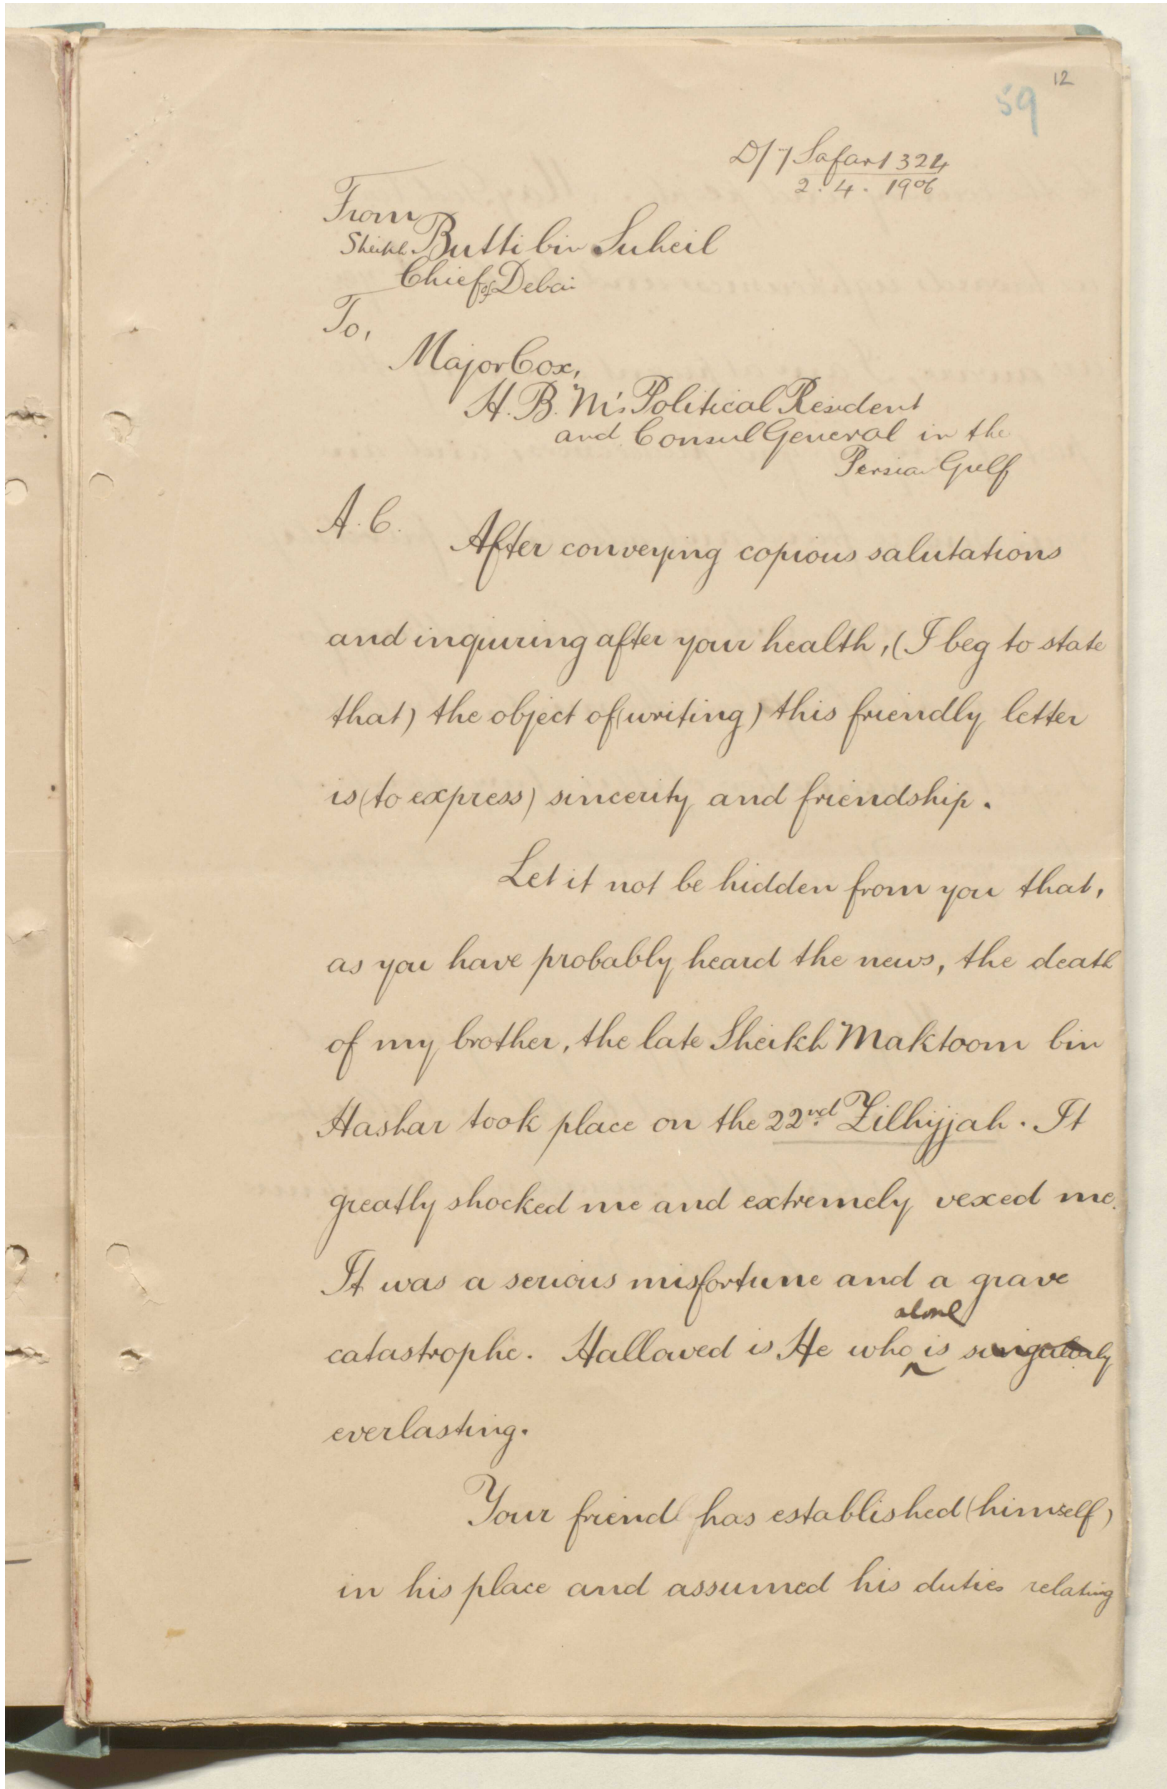 12
59
D/ 7 Safar 1324
2. 4. 1906
From
Sheikh Butti bin Suheil
Chief of Debai
To,
Major Cox,
H. B. M's Political Resident
and Consul General in the
Persian Gulf
A. C.
After conveying copious salutations
and inquiring after your health, (I beg to state
that) the object of (writing) this friendly letter
is (to express) sincerity and friendship.
Let it not be hidden from you that,
as you have probably heard the news, the death
of my brother, the late Sheikh Maktoom bin
Hashar took place on the 22nd Zilhijjah. It
greatly shocked me and extremely vexed me.
It was a serious misfortune and a grave
alone
catastrophe. Hallowed is He who is singularly
everlasting.
Your friend has established (himself)
in his place and assumed his duties relating